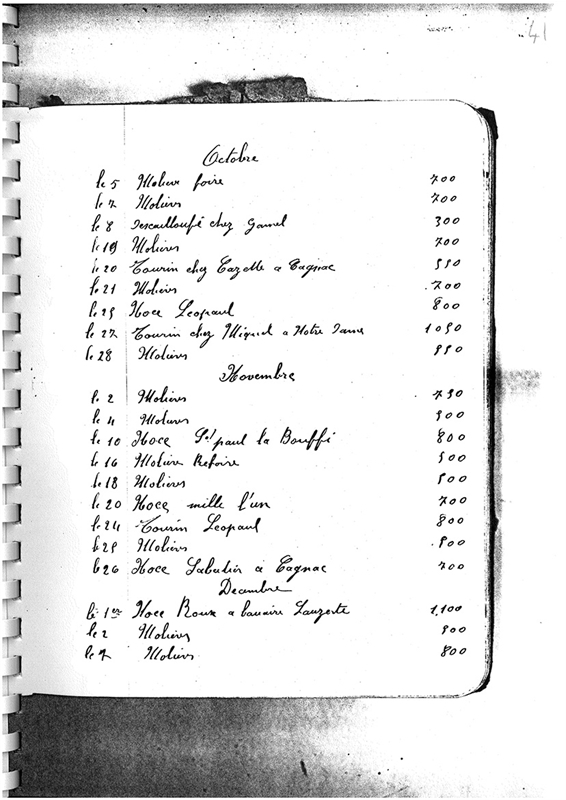 41
Octobre
le 5 Molieres foire 700
le 7 Molieres 700
le 8 chez Gamel 300
le 19 Molieres 700
le 20 Tourin chez Cazette a Cagnac 550
le 21 Molieres 700
le 25 Noce Léopaul 800
le 27 Tourin chez Miquel a Notre Dame 1050
le 28 Molieres 550
Novembre
le 2 Molieres 750
le 4 Molieres 500
le 10 Noce St paul la Bouffi 800
le 16 Moliere Refoire 500
le 18 Molieres 500
le 20 Noce mille l'un 700
le 24 Tourin Léopaul 800
le 25 Molieres 500
le 26 Noce Sabatier à Cagnac 700
Decembre
le 1er Noce Roux a Lauzerte 1.100
le 2 Molieres 500
le 7 Molieres 800